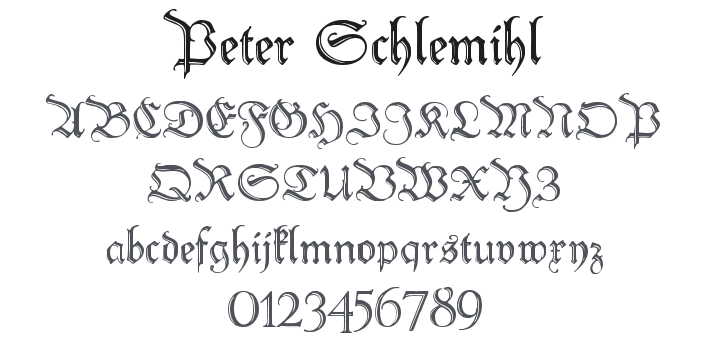 Peter Schlemihl
ABCDEFGHIJKLMNOP
QRSTUVWXYZ
abcdefghijklmnopqrstuvwxyz
0123456789